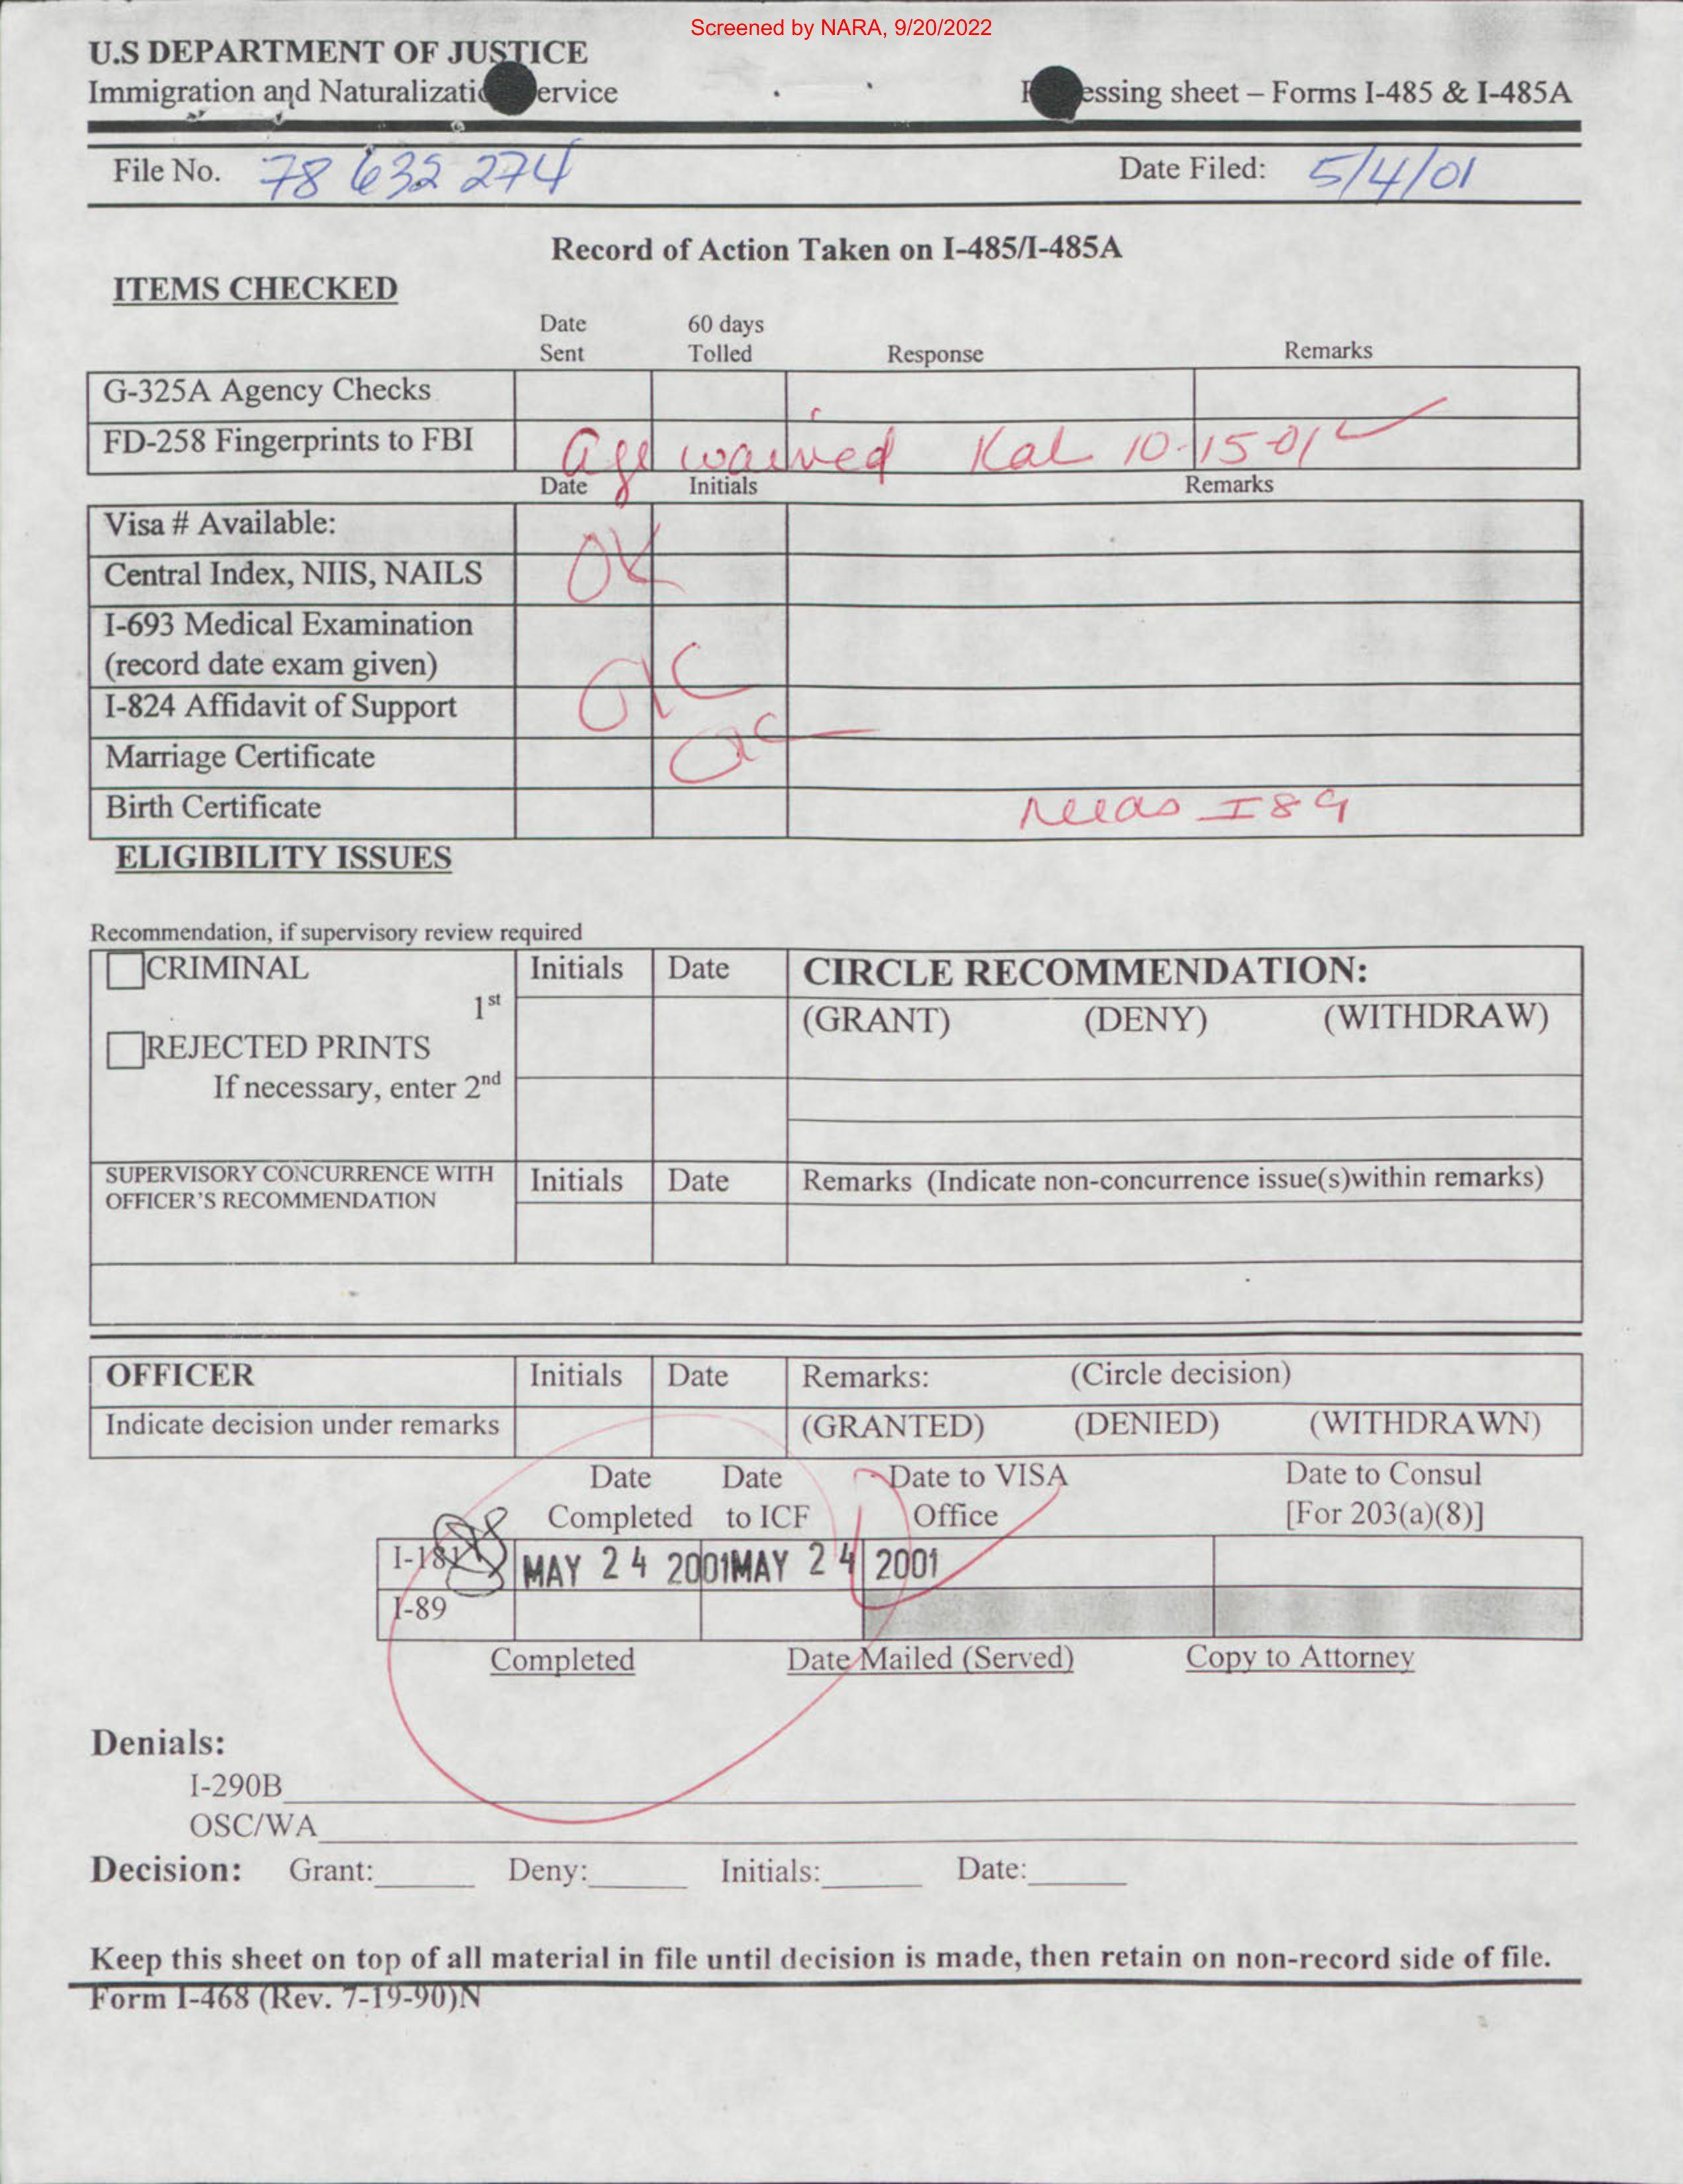 Screened by NARA, 9/20/2022
U.S DEPARTMENT OF JUSTICE
Immigration and Naturalizatio ervice
essing sheet – Forms I-485 & I-485A
File No. 78 632 274
Date Filed: 5/4/01
Record of Action Taken on I-485/I-485A
ITEMS CHECKED
Date Sent
60 days Tolled
Response
Remarks
G-325A Agency Checks
FD-258 Fingerprints to FBI
age waived Kal 10-15-01
Date
Initials
Remarks
Visa # Available:
Central Index, NIIS, NAILS
OK
I-693 Medical Examination
(record date exam given)
OK
I-824 Affidavit of Support
Marriage Certificate
Birth Certificate
Needs I89
ELIGIBILITY ISSUES
Recommendation, if supervisory review required
CRIMINAL
Initials
Date
CIRCLE RECOMMENDATION:
1st
(GRANT) (DENY) (WITHDRAW)
REJECTED PRINTS
If necessary, enter 2nd
SUPERVISORY CONCURRENCE WITH
OFFICER'S RECOMMENDATION
Initials
Date
Remarks (Indicate non-concurrence issue(s)within remarks)
OFFICER
Initials
Date
Remarks: (Circle decision)
Indicate decision under remarks
(GRANTED) (DENIED) (WITHDRAWN)
Date Completed
Date to ICF
Date to VISA Office
Date to Consul
[For 203(a)(8)]
I-181
MAY 24 2001 MAY 24 2001
I-89
Completed
Date Mailed (Served)
Copy to Attorney
Denials:
I-290B
OSC/WA
Decision: Grant: Deny: Initials: Date:
Keep this sheet on top of all material in file until decision is made, then retain on non-record side of file.
Form I-468 (Rev. 7-19-90)N